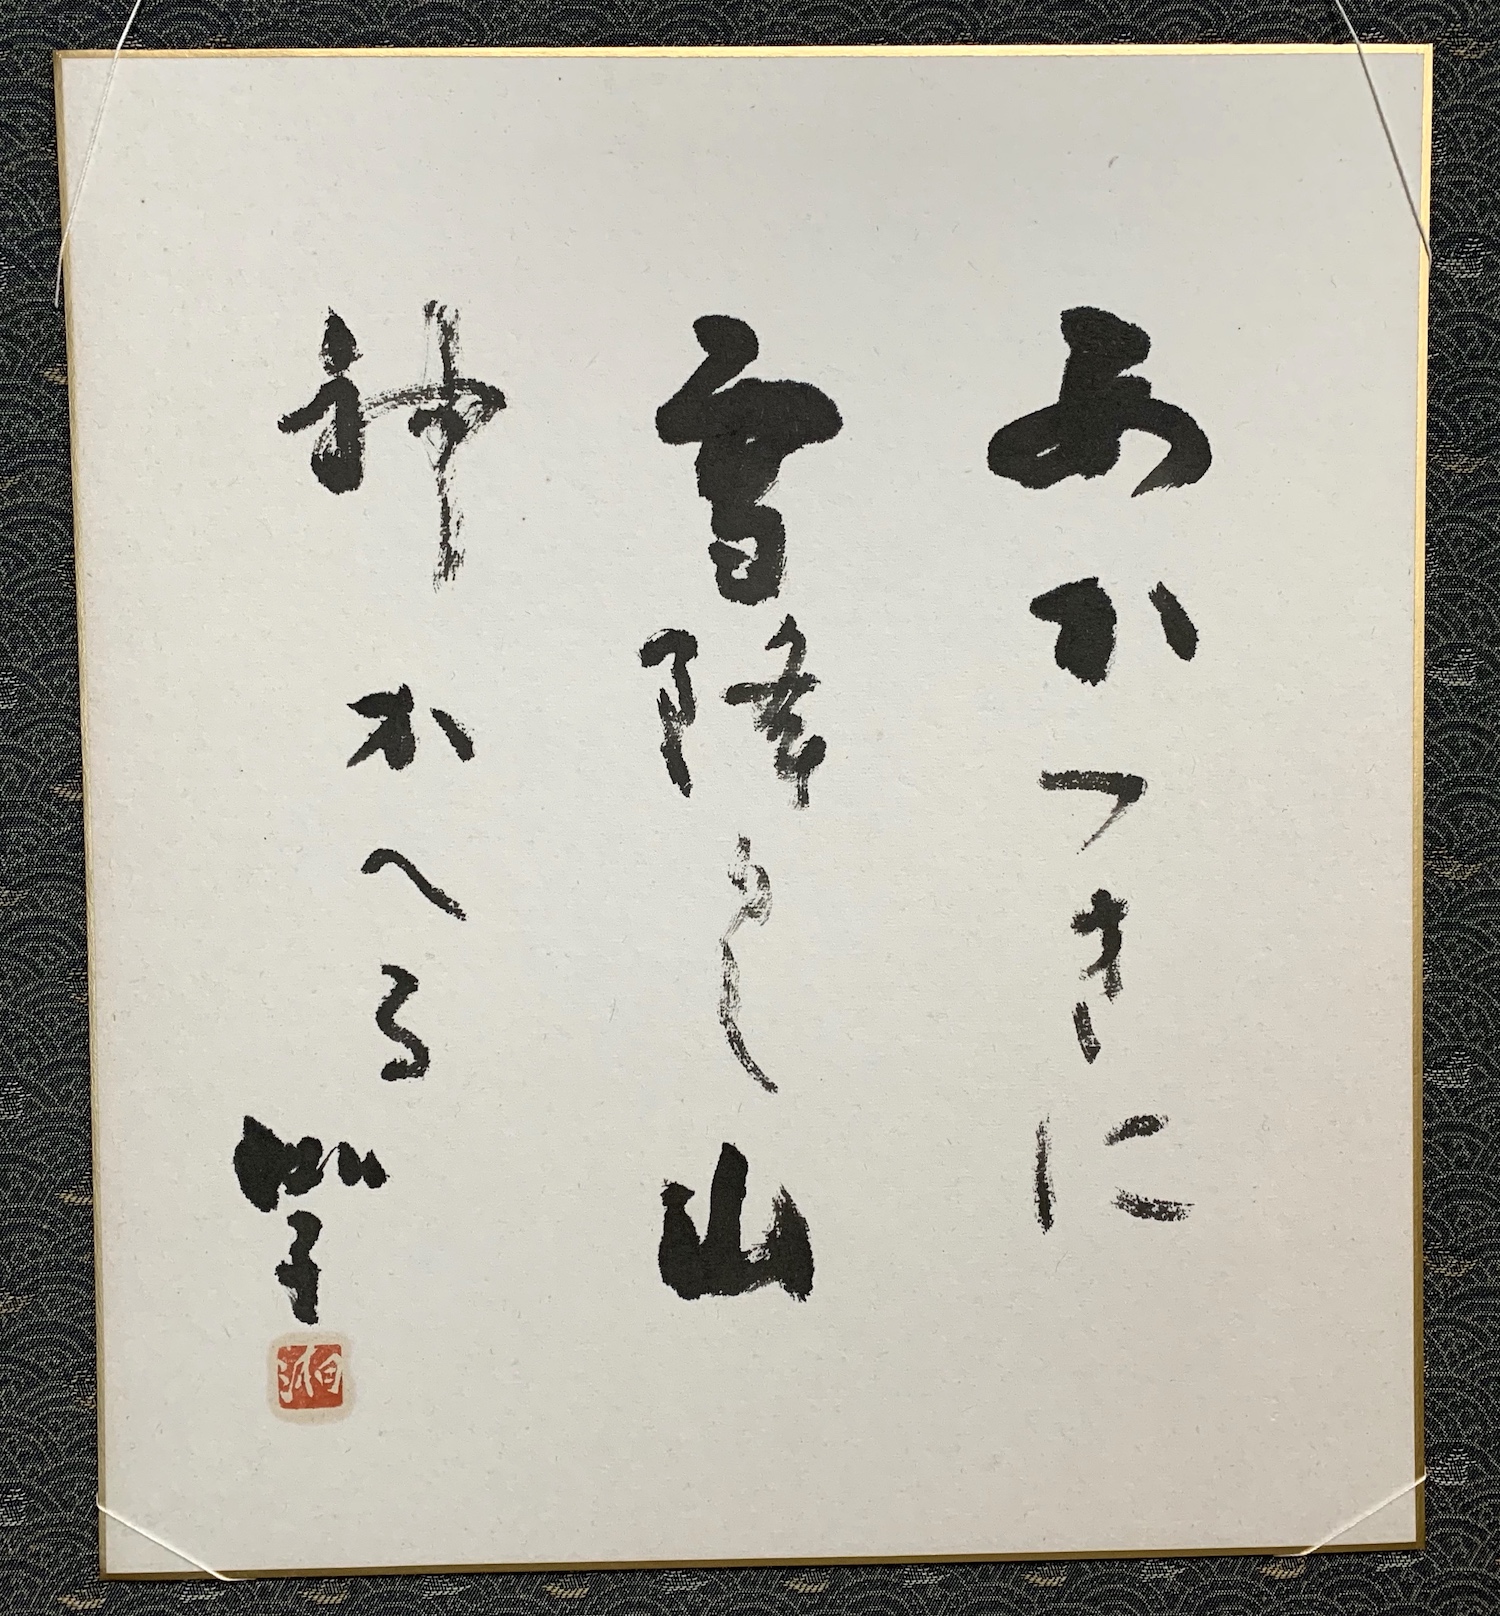 あかつきに
雪降りし山
神かへる
湘子
湘